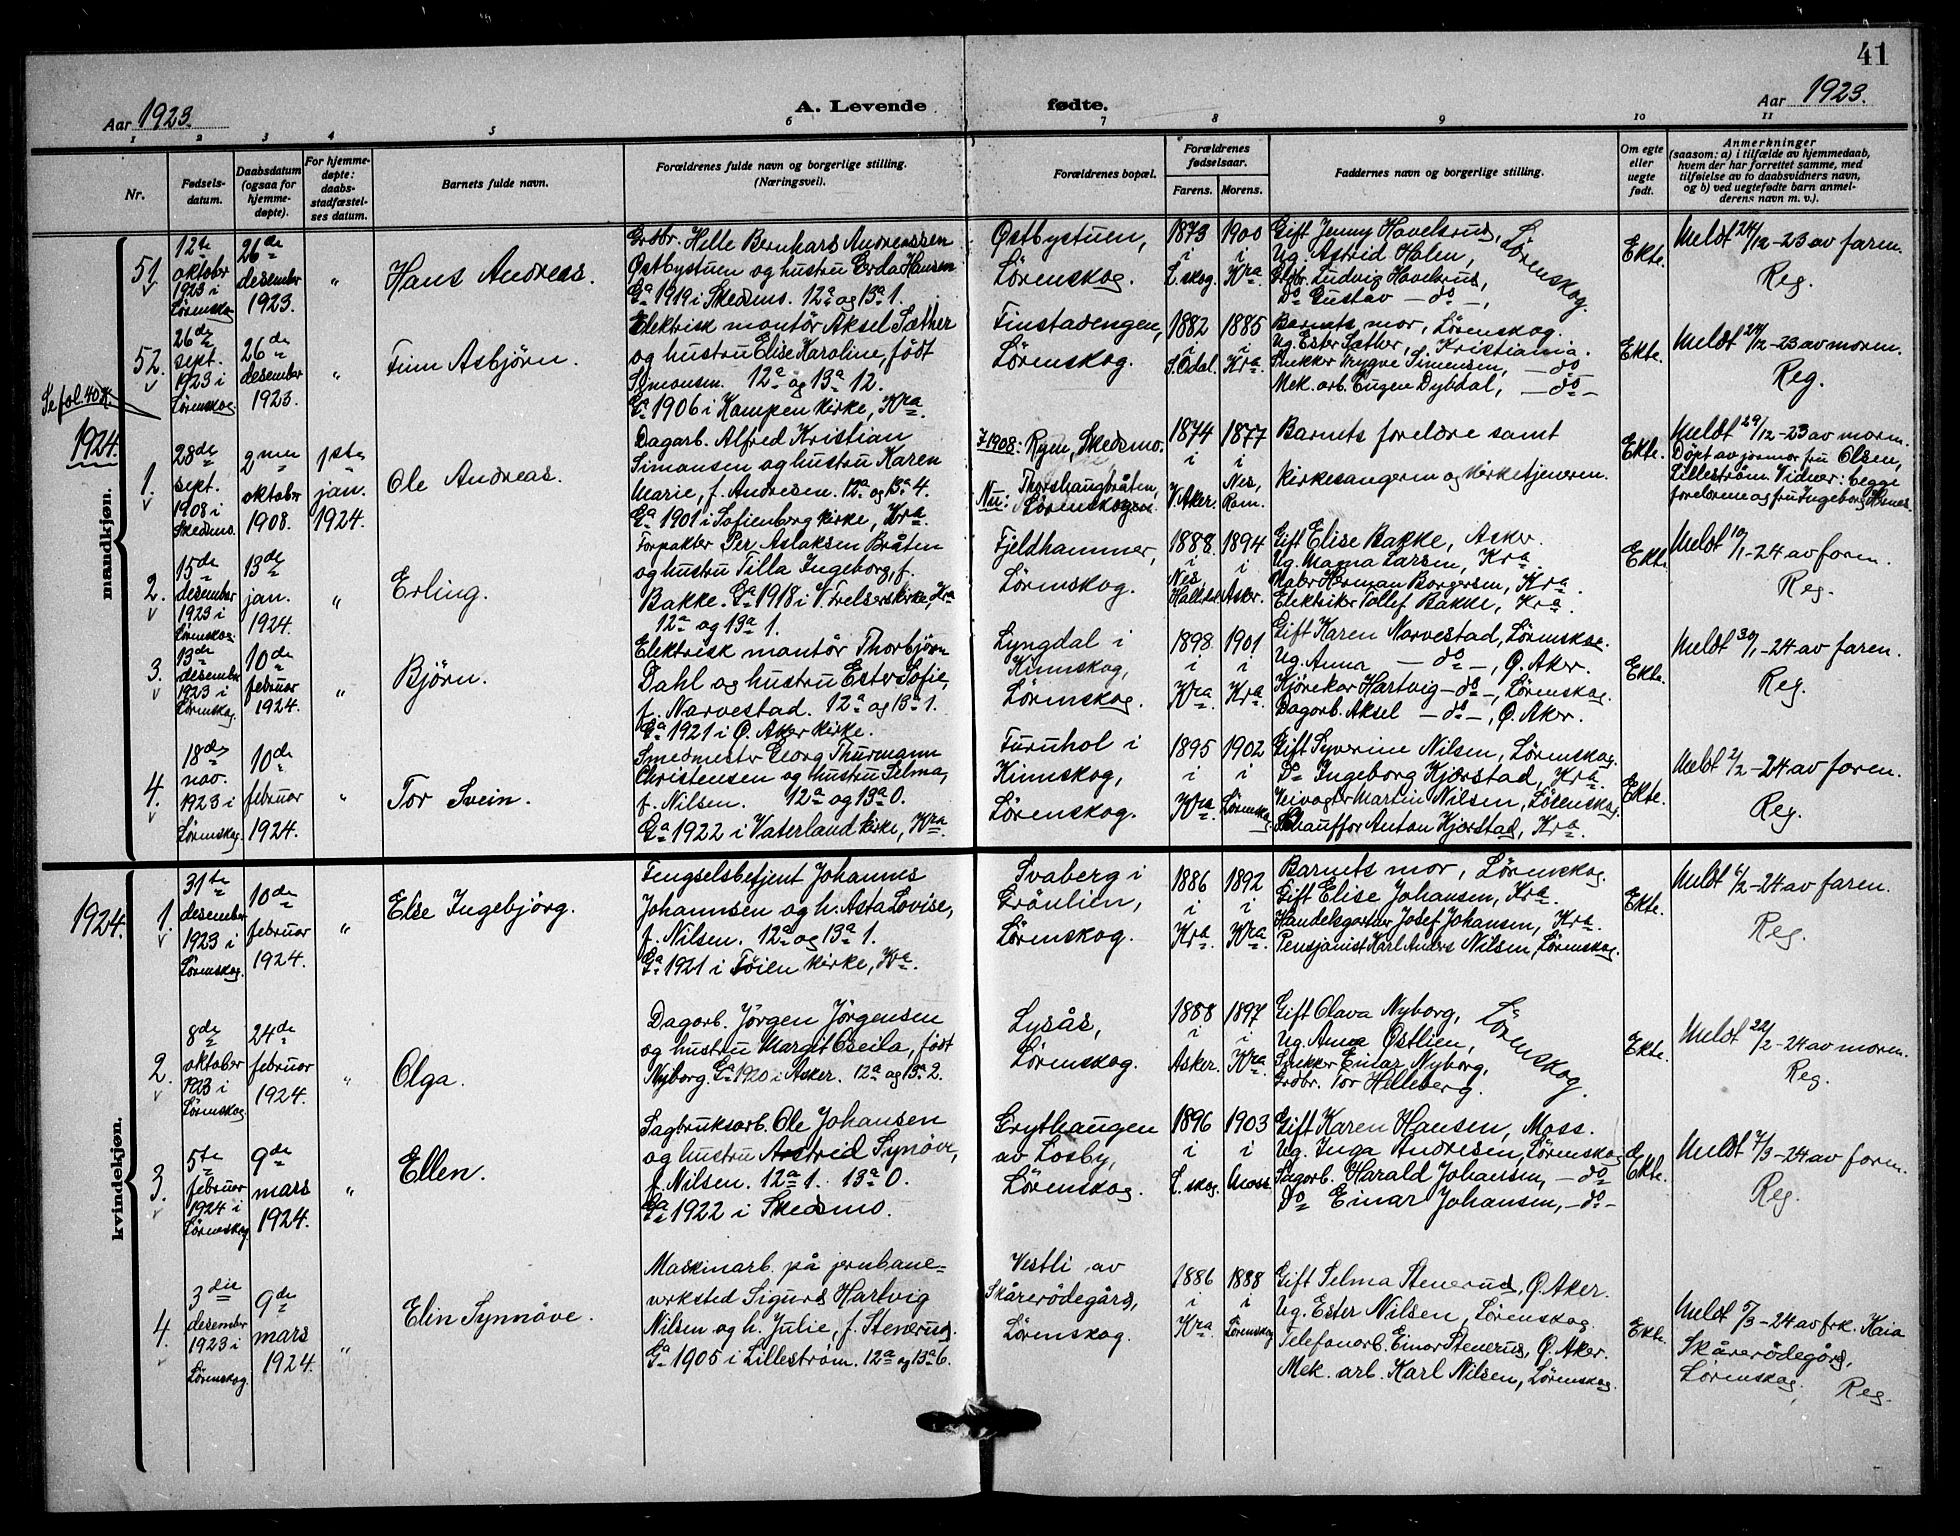 41
Aar 1923.
A. Levende fødte.
Aar 1923.
1 2 3 4 5 6 7 8 9 10 11
Nr.
Fødsels-
datum.
Daabsdatum
(ogsaa for
hjemme-
døpte).
For hjemme-
døpte:
daabs-
stadfæstel-
ses datum.
Barnets fulde navn.
Forældrenes fulde navn og borgerlige stilling.
(Næringsvei).
Forældrenes bopæl.
Forældrenes
fødselsaar.
Farens. Morens.
Faddernes navn og borgerlige stilling.
Om egte
eller
uegte
født.
Anmerkninger
(saasom: a) i tilfælde av hjemmedaab,
hvem der har forrettet samme, med
tilføielse av to daabsvidners navn,
og b) ved uegtefødte barn anmel-
derens navn m. v.).
mandkjøn.
51.
12te
oktober
1923 i
Lørenskog
26de
desember
1923.
"
Hans Andreas.
Grdbr. Helle Bernhard Andreassen
Østbystuen og hustru Gerda Hansen
Ga 1919 i Skedsmo. 12a og 13a 1.
Østbystuen,
Lørenskog.
1873
i
L.skog.
1900
i
Kra
Gift Jenny Hovelsrud,
Ug. Astrid Holen,
Grdbr. Ludvig Hovelsrud,
Do Gustav — do —,
Lørenskog.
Ekte.
Meldt 24/12-23 av faren.
Reg.
52.
26de
sept.
1923 i
Lørenskog
26de
desember
1923.
"
Finn Asbjörn.
Elektrisk montör Aksel Sæther
og hustru Elise Karoline, født
Simonsen. 12a og 13a 12.
Ga 1906 i Kampen kirke, Kra.
Finstadengen,
Lørenskog.
1882
i
S. Odal.
1885
i
Kra
Barnets mor, Lørenskog.
Ug. Ester Sæther, Kristiania.
Snekker Trygve Simensen, — do
Mek. arb. Eugen Dybdal, — do —
Ekte.
Meldt 24/12-23 av moren.
Reg.
Se fol. 40
1924.
1.
28de
sept.
1908 i
Skedsmo.
2nen
oktober
1908.
1ste
jan.
1924.
Ole Andreas.
Dagarb. Alfred Kristian
Simonsen og hustru Karen
Marie, f. Andresen. 12a og 13a 4.
Ga 1901 i Sofienberg kirke, Kra.
I 1908: Ryen, Skedsmo.
Nu: Thorshaugbråten,
Lørenskogen.
1874
i
V. Aker.
1877
i
Nes,
Rom.
Barnets foreldre samt
kirkesangeren og kirketjeneren.
Ekte.
Meldt 29/12-23 av moren.
Døpt av jormor fru Olsen,
Lilleström. Vidner: begge
forældrene og fru Ingeborg
2.
15de
desember
1923 i
Lørenskog.
13de
jan.
1924.
"
Erling.
Forpakter Per Aslaksen Bråten
og hustru Tilla Ingeborg, f.
Bakke. Ga 1918 i V. Frelsers kirke, Kra
12a og 13a 1.
Fjeldhammer,
Lørenskog.
1888.
i
Nes,
Hallingdal
1894
i
Asker.
Gift Elise Bakke, Asker.
Ug. Mama Larsen, Kra.
Maler Herman Borgersen, Kra.
Elektriker Tollef Bakke, Kra.
Ekte.
Meldt 10/1-24 av faren.
Reg.
3.
13de
desember
1923 i
Lørenskog.
10de
februar
1924.
"
Bjørn.
Elektrisk montör Thorbjørn
Dahl og hustru Ester Sofie,
f. Narvestad. 12a og 13a 1.
Ga 1921 i Ø. Aker kirke.
Lyngdal i
Kinnskog,
Lørenskog.
1898
i
Kra.
1901
i
Kra.
Gift Karen Narvestad, Lørenskog.
Ug. Anna — do —, Ø. Aker.
Kjørekar Hartvig — do —, Lørenskog.
Dagarb. Aksel — do —, Ø. Aker.
Ekte.
Meldt 30/1-24 av faren.
Reg.
4.
18de
nov.
1923 i
Lørenskog.
10de
februar
1924.
"
Tor Svein.
Smedmester Georg Thurmann
Christensen og hustru Selma,
f. Nilsen. 12a og 13a 0.
Ga 1922 i Vaterland kirke, Kra.
Furuhol i
Kinnskog,
Lørenskog.
1895
i
Kra.
1902
i
Lørenskog
Gift Syverine Nilsen, Lørenskog.
Do Ingeborg Kjærstad, Kra.
Veivogter Martin Nilsen, Lørenskog.
Chauffør Anton Kjærstad, Kra.
Ekte.
Meldt 2/2-24 av faren.
Reg.
kvindekjøn.
1924.
1.
31te
desember
1923 i
Lørenskog.
10de
februar
1924.
"
Else Ingebjörg.
Fengselsbetjent Johannes
Johannsen og h. Asta Lovise,
f. Nilsen. 12a og 13a 1.
Ga 1921 i Tøien kirke, Kra.
Svaberg i
Grönlien,
Lørenskog.
1886
i
Kra
1892
i
Kra.
Barnets mor, Lørenskog.
Gift Elise Johansen, Kra.
Handelsgartner Josef Johansen, Kra.
Pensjonist Karl Anders Nilsen, Lørenskog.
Ekte.
Meldt 6/2-24 av faren.
Reg.
2.
8de
oktober
1923 i
Lørenskog.
24de
februar
1924.
"
Olga.
Dagarb. Jörgen Jörgensen
og hustru Margit Cecilia, født
Nyborg. Ga 1920 i Asker. 12a og 13a 2.
Lysås,
Lørenskog.
1888
i
Asker.
1897
i
Kra.
Gift Olava Nyborg,
Ug. Anna Østlien,
Snekker Einar Nyborg,
Grdbr. Tor Helleberg.
Lörenskog
Ekte.
Meldt 22/2-24 av moren.
Reg.
3.
5te
februar
1924 i
Lørenskog.
9de
mars
1924.
"
Ellen.
Sagbruksarb. Ole Johansen
og hustru Astrid Synöve,
f. Nilsen. 12a 1. 13a 0.
Ga 1922 i Skedsmo.
Grythaugen
av Losby,
Lørenskog.
1896
i
L. skog.
1903
i
Moss.
Gift Karen Hansen, Moss.
Ug. Inga Andresen, Lørenskog
Sagarb. Harald Johansen, — do
Do Einar Johansen, — do —
Ekte.
Meldt 7/3-24 av faren.
Reg.
4.
3die
desember
1923 i
Lørenskog.
9de
mars
1924.
"
Elin Synnöve.
Maskinarb. på jernbane-
verksted Sigurd Hartvig
Nilsen og h. Julie, f. Stenerud.
Ga 1905 i Lillestrøm. 12a og 13a 6.
Vestli av
Skårerödegård,
Lørenskog.
1886
i
Kra
1888
i
Lørenskog
Gift Selma Stenerud, Ø. Aker.
Ug. Ester Nilsen, Lørenskog.
Telefonarb. Einar Stenerud, Ø. Aker.
Mek. arb. Karl Nilsen, Lørenskog.
Ekte.
Meldt 5/3-24 av frk. Kaia
Skårerödegård,
Lørenskog. Reg.